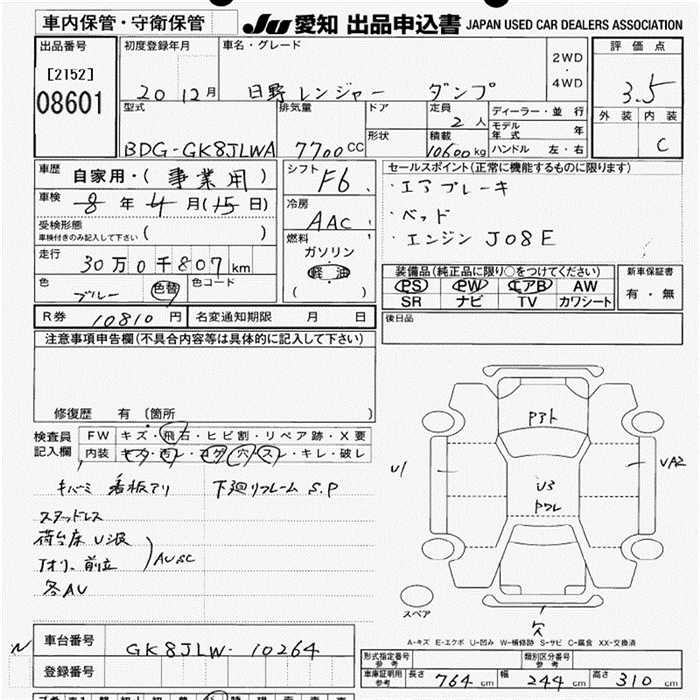 車内保管・守衛保管
JU 愛知 出品申込書 JAPAN USED CAR DEALERS ASSOCIATION
出品番号
[2152]
08601
初度登録年月
20 12月
車名・グレード
日野 レンジャー ダンプ
2WD
・
4WD
評価点
3.5
外装 内装
C
型式
BDG-GK8JLWA
排気量
7700 CC
ドア
形状
定員
2 人
積載
10600 kg
ディーラー・並行
モデル年式 年
ハンドル 左・右
車歴
自家用・(事業用)
車検
8 年 4 月(15 日)
受検形態
車検付きのみ記入して下さい ( )
走行
30万0千807 km
色
ブルー
色替
色コード
シフト
F6
冷房
AAC
燃料
ガソリン
軽油
( )
セールスポイント(正常に機能するものに限ります)
・エアブレーキ
・ベッド
・エンジン J08E
装備品(純正品に限り○をつけてください)
PS PW エアB AW
SR ナビ TV カワシート
新車保証書
有・無
R券 10810 円
名変通知期限 月 日
後日品
注意事項申告欄(不具合内容等は具体的に記入して下さい)
修復歴 有 〔箇所 〕
検査員記入欄
FW キズ・飛石・ヒビ割・リペア跡・X要
内装 キズ・汚レ・コゲ・穴・スレ・キレ・破レ
キバミ 看板アリ 下廻リフレーム S.P
スタッドレス
荷台床 U 汲
アオリ、前立
AUSC
各AU
Pアト
U1
UA2
U3
Pワレ
欠
スペア
A-キズ E-エクボ U-凹み W-補修跡 S-サビ C-腐食 XX-交換済
車台番号
GK8JLW-10264
登録番号
形式指定番号
参考
類別区分番号
参考
車庫証明用
参考
長さ 764 cm 幅 244 cm 高さ 310 cm